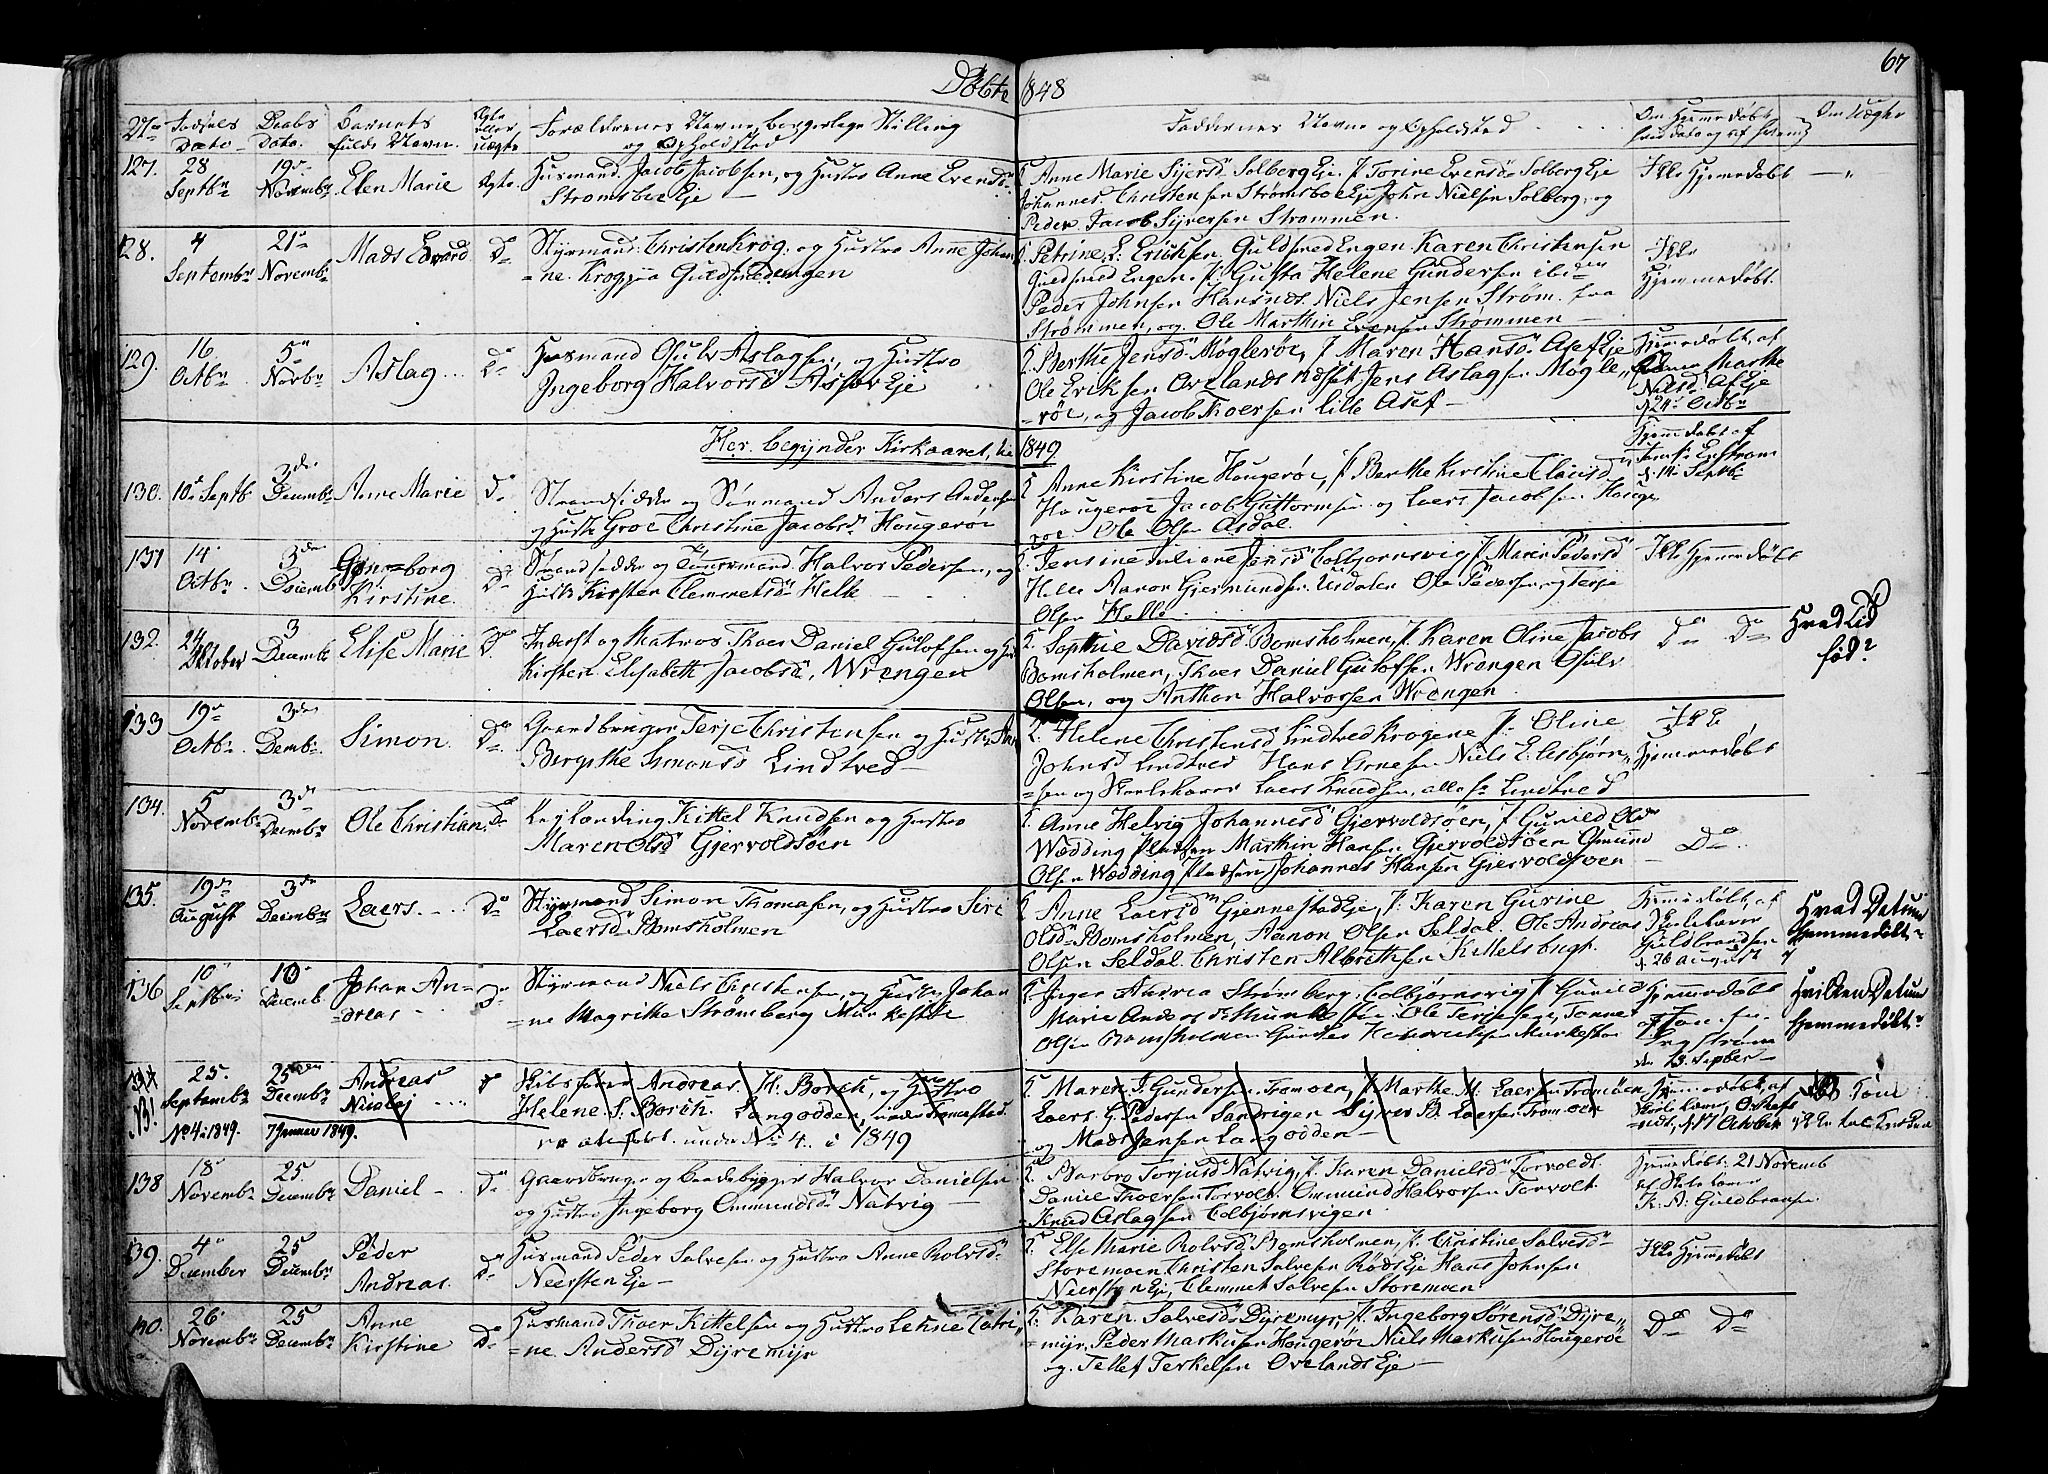 Døbte 1848
67
No Fødsels Dato. Daabs Dato. Barnets fulde Navn. Ægte eller uægte Forældrenes Navne, borgerlige Stilling og Opholdsted
Faddernes Navne og Opholdsted
Om Hjemmedøbt, hvor Dato og af hvem
127. 28 Septbr 19de Novembr Elen Marie Ægte. Huusmand Jacob Jacobsen, og Hustro Anne Evensd
Strømsboe Eje
Anne Marie Sijersd Solberg Eje, Torine Evensd Solberg Eje
Johannes Christensen Strømsboe Eje John Nielsen Solberg, og
Peder Jacob Syversen Strømmen.
Ikke Hjemmedøbt
128. 4 Septembr 21de Novembr Mads Edvard Do Styrmand Christen Krog, og Hustro Anne Johan
=ne Krog Guldsmedengen
Petrine L. Eriksen, Guldsmed Engen. Karen Christensen
Guldsmed Engen. Gusta Helene Gundersen ibidm
Peder Johnsen Hansnæs. Niels Jensen Strøm. fra
Strømmen, og Ole Marthin Evensen Strømmen
Ikke
Hjemmedøbt.
129. 16 Octbr 5te Novbr Aslag Do Huusmand Osulv Aslagsen, og Hustro
Ingeborg Halvorsd Assev Eje
Berthe Jensd Møglerøe, Maren Hansd Asef Eje
Ole Eriksen Ovelands Næset, Jens Aslagsen Møgle
=røe, og Jacob Thoersen lille Asef
Hjemmedøbt, af
Marthe
Nielsd Asef Eje
d. 24de Octbr
Her begynder Kirkeaaret 1849
130. 10de Septb 3die Decembr Anne Marie Do Strandsidder og Sømand Anders Andersen
og Hustr Groe Christine Jacobsd Hougerøe
Anne Kirstine Hougerøe, Berthe Kirstine Clausd
Hougerøe Jacob Guttormsen og Laers Jacobsen Houge
røe Ole Olsen Asdal.
Hjemmedøbt af
Jomfr Engstrøm
d. 14 Septbr
131 14 Octbr 3die Decemb Gunneborg
Kirstine Do Strandsidder og Tømmermand Halvor Pedersen, og
Hustr Kirsten Clemmetsd Helle
Jensine Juliane Jensd Colbjørnsvig, Maren Pedersd
Helle Aanon Gjermundsen Uldalen Ole Pedersen og Terje
Olsen Helle
Ikke Hjemmedøbt
132. 24 Oktober 3 Decembr Elise Marie Do Inderst og Matros Thoer Daniel Gulofsen og Hus
Kirsten Elisabeth Jacobsd, Wrengen
Sophie Davidsd Bomsholmen, Karen Oline Jacobs
Bomsholmen, Thoer Daniel Gulofsen Wrengen Osulv
Olsen, og Anthon Halvorsen Wrengen
Do Do Hvad Tid
fød?
133 19de Octbr 3die Decembr Simon. Do Gaardbruger Terje Christensen og Hustro
Bergithe Simonsd Lindtved
Helene Christensd Lindtved Krogene, Oline
Johnsd Lindtved Hans Nielsen Niels E. Esbjørn
=sen og Laers Knudsen, alle fr Lindtved
Ikke
Hjemmedøbt
134. 5 Novembr 3die Decembr Ole Christian. Do Leglænding Kittel Knudsen og Hustro
Maren Olsd Gjervoldsøen
Anne Helvig Johannesd Gjervoldsøen, Gunild Olsd
Wædding Pladsen Marthin Hansen Gjervoldsøen Omund
Olsen Wædding Pladsen Johannes Hansen Gjervoldsøen
Do
135. 19de August 3die Decembr Laers. Do Styrmand Simon Thomasen, og Hustro Siri
Laersd Bomsholmen
Anne Laersd Gjennestad Eje, Karen Gurine
Olsd Bomsholmen, Aanon Olsen Seldal. Ole Andreas
Olsen Seldal. Christen Albrethsen Kittelsbugt
Hjemmedøbt, af
Skolelærer
Guldbrandsen
d. 26 August
Hvad Datum
Hjemmedøbt?
136 10 Septbr 10 Decemb. Johan An=
=dreas Do Styrmand Niels Christensen og Hustro Johan
=ne Magrethe Strømberg Mærkestøe
Inger Andrea Strømberg Colbjørnsvig, Gunild
Marie Andersd Ole Terjesen, Tønnes
Olsen Bomsholmen Gunder Henriksen Mærkestøe
Hjemmedøbt
af Jomfru
Engstrøm
den 13 Septbr
Hvilken Datum
Hjemmedøbt?
137 25. Septembr 25de Decembr Andreas
Nicolaj Do Skibsfører Andreas H. Borch, og Hustro
Helene S. Borch. Langodden, under Tromøstad
No 4 i 1849. 7 Januar 1849. under No 4 i 1849
Maren J. Gundersen Tromøen, Marthe M. Laersen Tromøen
Laers G. Pedersen Sandvigen Syver B. Laersen Tromøen
og Mads Jensen Langodden
d. 17 October
138 18 Novembr 25 Decembr Daniel Do Gaardbruger og Baadebygger Halvor Danielsen
og Hustro Ingeborg Ommundsd Natvig
Barbro Torjusd Natvig, Karen Danielsd Torvoldt.
Daniel Thoersen Torvolt. Ommund Halvorsen Torvolt
Knud Aslagsen Colbjørnsvigen
Hjemmedøbt 21 Novemb
af Skolelærer
K. A. Guldbransen
139. 4de December 25 Decembr Peder
Andreas. Do Huusmand Peder Salvesen og Hustro Anne Rolvsd
Neersten Eje
Else Marie Rolvsd Bomsholmen, Christine Salvesd
Storemoen Christen Salvesen Røds Eje Hans Johnsen
Neersten Eje, Clemmet Salvesen Storemoen
Ikke Hjemmedøbt
140. 26 Novembr 25 Decembr Anne
Kirstine Do Huusmand Thoer Kittelsen og Hustro Lehne Catri
=ne Andersd Dyremyr
Karen Salvesd Dyremyr, Ingeborg Sørensd Dyre
myr, Peder Markusen Hougerøe Niels Markusen Hougerøe
og Tellef Terkelsen Ovelands Eje
Do Do